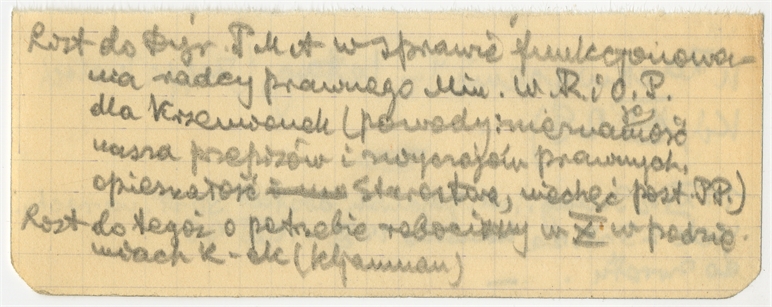 List do Dyr. P M A w sprawie funkcjonowa-
nia radcy prawnego Min. W. R. i O. P.
dla Krzemionek (powody: nieznajomość
nasza przepisów i zwyczajów prawnych,
opieszałość Starostwa, niechęć post. PP.)
List do tegoż o potrzebie robocizny w Z w podzie-
miach K-ek (